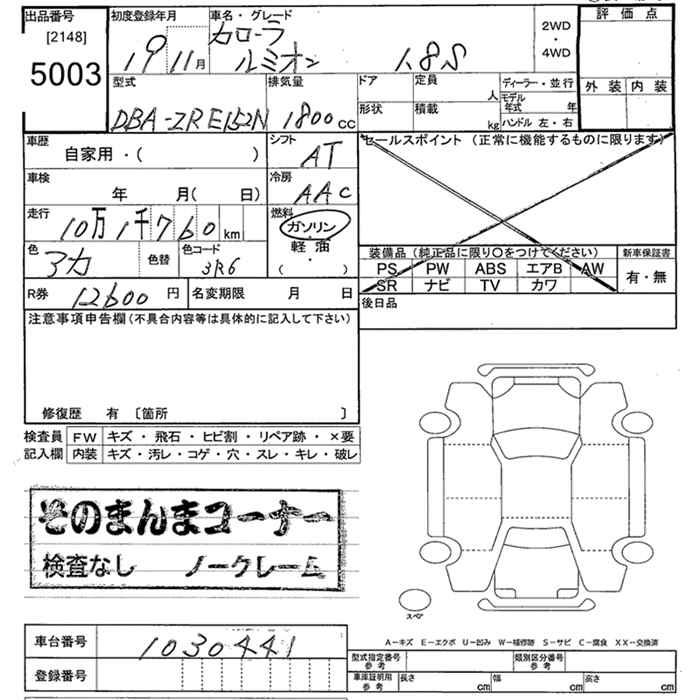 出品番号
[2148]
5003
初度登録年月
19 11月
車名・グレード
カローラ
ルミオン 1.8S
2WD
・
4WD
評価点
外装 内装
型式
DBA-ZRE152N
排気量
1800cc
ドア
形状
定員 人
積載 kg
ディーラー・並行
モデル年式 年
ハンドル 左・右
車歴
自家用・( )
シフト
AT
車検
年 月( 日)
冷房
AAC
走行
10万1千760km
燃料
ガソリン
軽油
( ・ )
色
アカ
色替
色コード
3R6
R券
12600円
名変期限 月 日
セールスポイント (正常に機能するものに限ります)
装備品(純正品に限り○をつけてください)
PS PW ABS エアB AW
SR ナビ TV カワ
新車保証書
有・無
後日品
注意事項申告欄(不具合内容等は具体的に記入して下さい)
修復歴 有 〔箇所 〕
検査員
記入欄
FW キズ・飛石・ヒビ割・リペア跡・×要
内装 キズ・汚レ・コゲ・穴・スレ・キレ・破レ
そのまんまコーナー
検査なし ノークレーム
スペア
A-キズ E-エクボ U-凹み W-補修跡 S-サビ C-腐食 XX-交換済
車台番号
1030441
登録番号
型式指定番号
参考
類別区分番号
参考
車庫証明用
参考
長さ cm
幅 cm
高さ cm